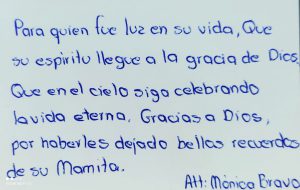 Para quien fue luz en su vida, Que
su espiritu llegue a la gracia de Dios,
Que en el cielo siga celebrando
la vida eterna. Gracias a Dios,
por haberles dejado bellos recuerdos
de su Mamita.
Att: Mónica Bravo